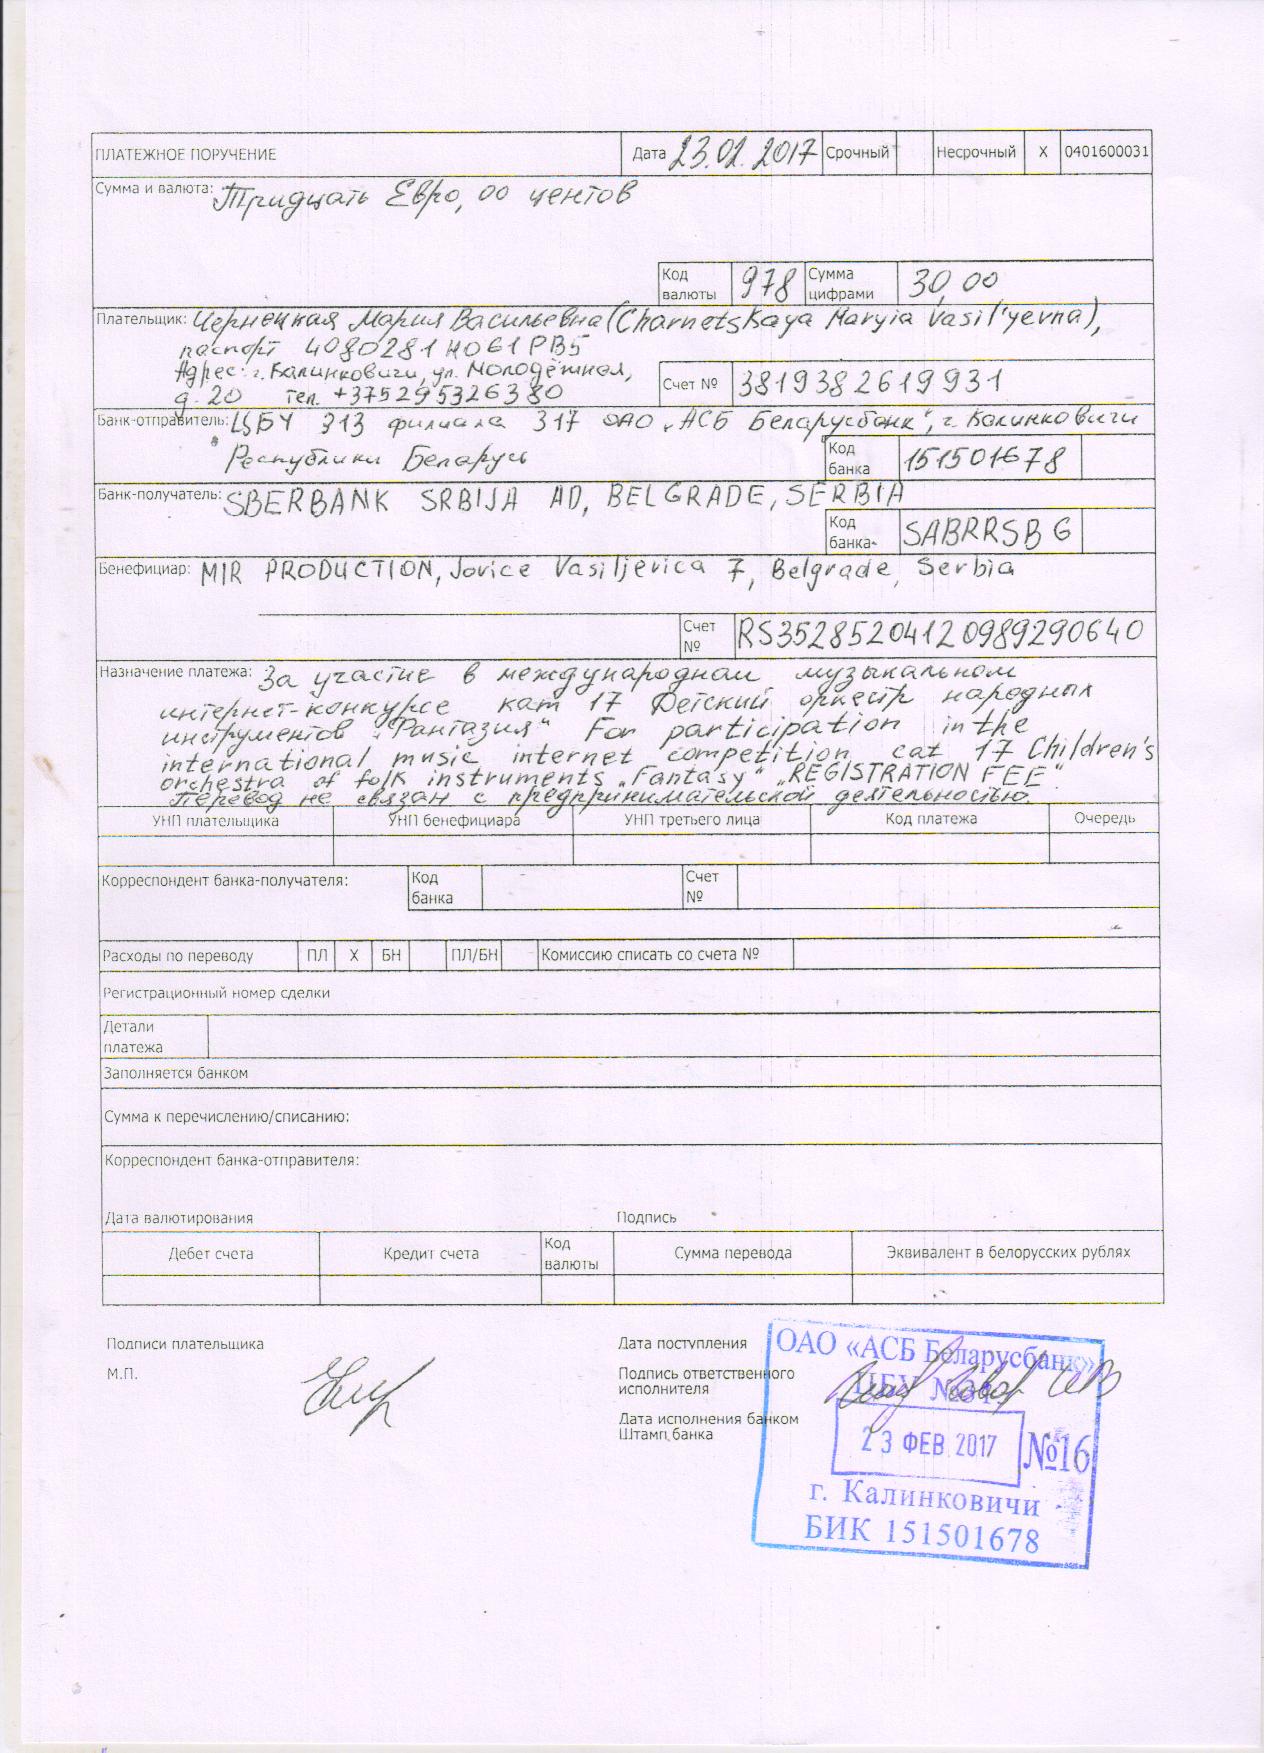 ПЛАТЕЖНОЕ ПОРУЧЕНИЕ Дата 23.02.2017 Срочный Несрочный X 0401600031
Сумма и валюта: Тридцать Евро, 00 центов
Код валюты 978 Сумма цифрами 30,00
Плательщик: Чернецкая Мария Васильевна (Charnetskaya Maryia Vasil'yevna),
паспорт 4080281H061PB5
Адрес: г. Калинковичи, ул. Молодёжная,
д. 20 тел. +375295326380 Счет № 3819382619931
Банк-отправитель: ЦБУ 313 филиала 317 ОАО „АСБ Беларусбанк", г. Калинковичи
Республики Беларусь Код банка 151501678
Банк-получатель: SBERBANK SRBIJA AD, BELGRADE, SERBIA
Код банка SABRRSBG
Бенефициар: MIR PRODUCTION, Jovice Vasiljevica 7, Belgrade, Serbia
Счет № RS35285204120989290640
Назначение платежа: За участие в международном музыкальном
интернет-конкурсе кат 17 Детский оркестр народных
инструментов „Фантазия" For participation in the
international music internet competition cat 17 Children's
orchestra of folk instruments „Fantasy" „REGISTRATION FEE"
Перевод не связан с предпринимательской деятельностью.
УНП плательщика УНП бенефициара УНП третьего лица Код платежа Очередь
Корреспондент банка-получателя: Код банка Счет №
Расходы по переводу ПЛ X БН ПЛ/БН Комиссию списать со счета №
Регистрационный номер сделки
Детали
платежа
Заполняется банком
Сумма к перечислению/списанию:
Корреспондент банка-отправителя:
Дата валютирования Подпись
Дебет счета Кредит счета Код валюты Сумма перевода Эквивалент в белорусских рублях
Подписи плательщика Дата поступления
М.П. Подпись ответственного
исполнителя
Дата исполнения банком
Штамп банка
ОАО «АСБ Беларусбанк»
ЦБУ №
23 ФЕВ 2017 №16
г. Калинковичи
БИК 151501678